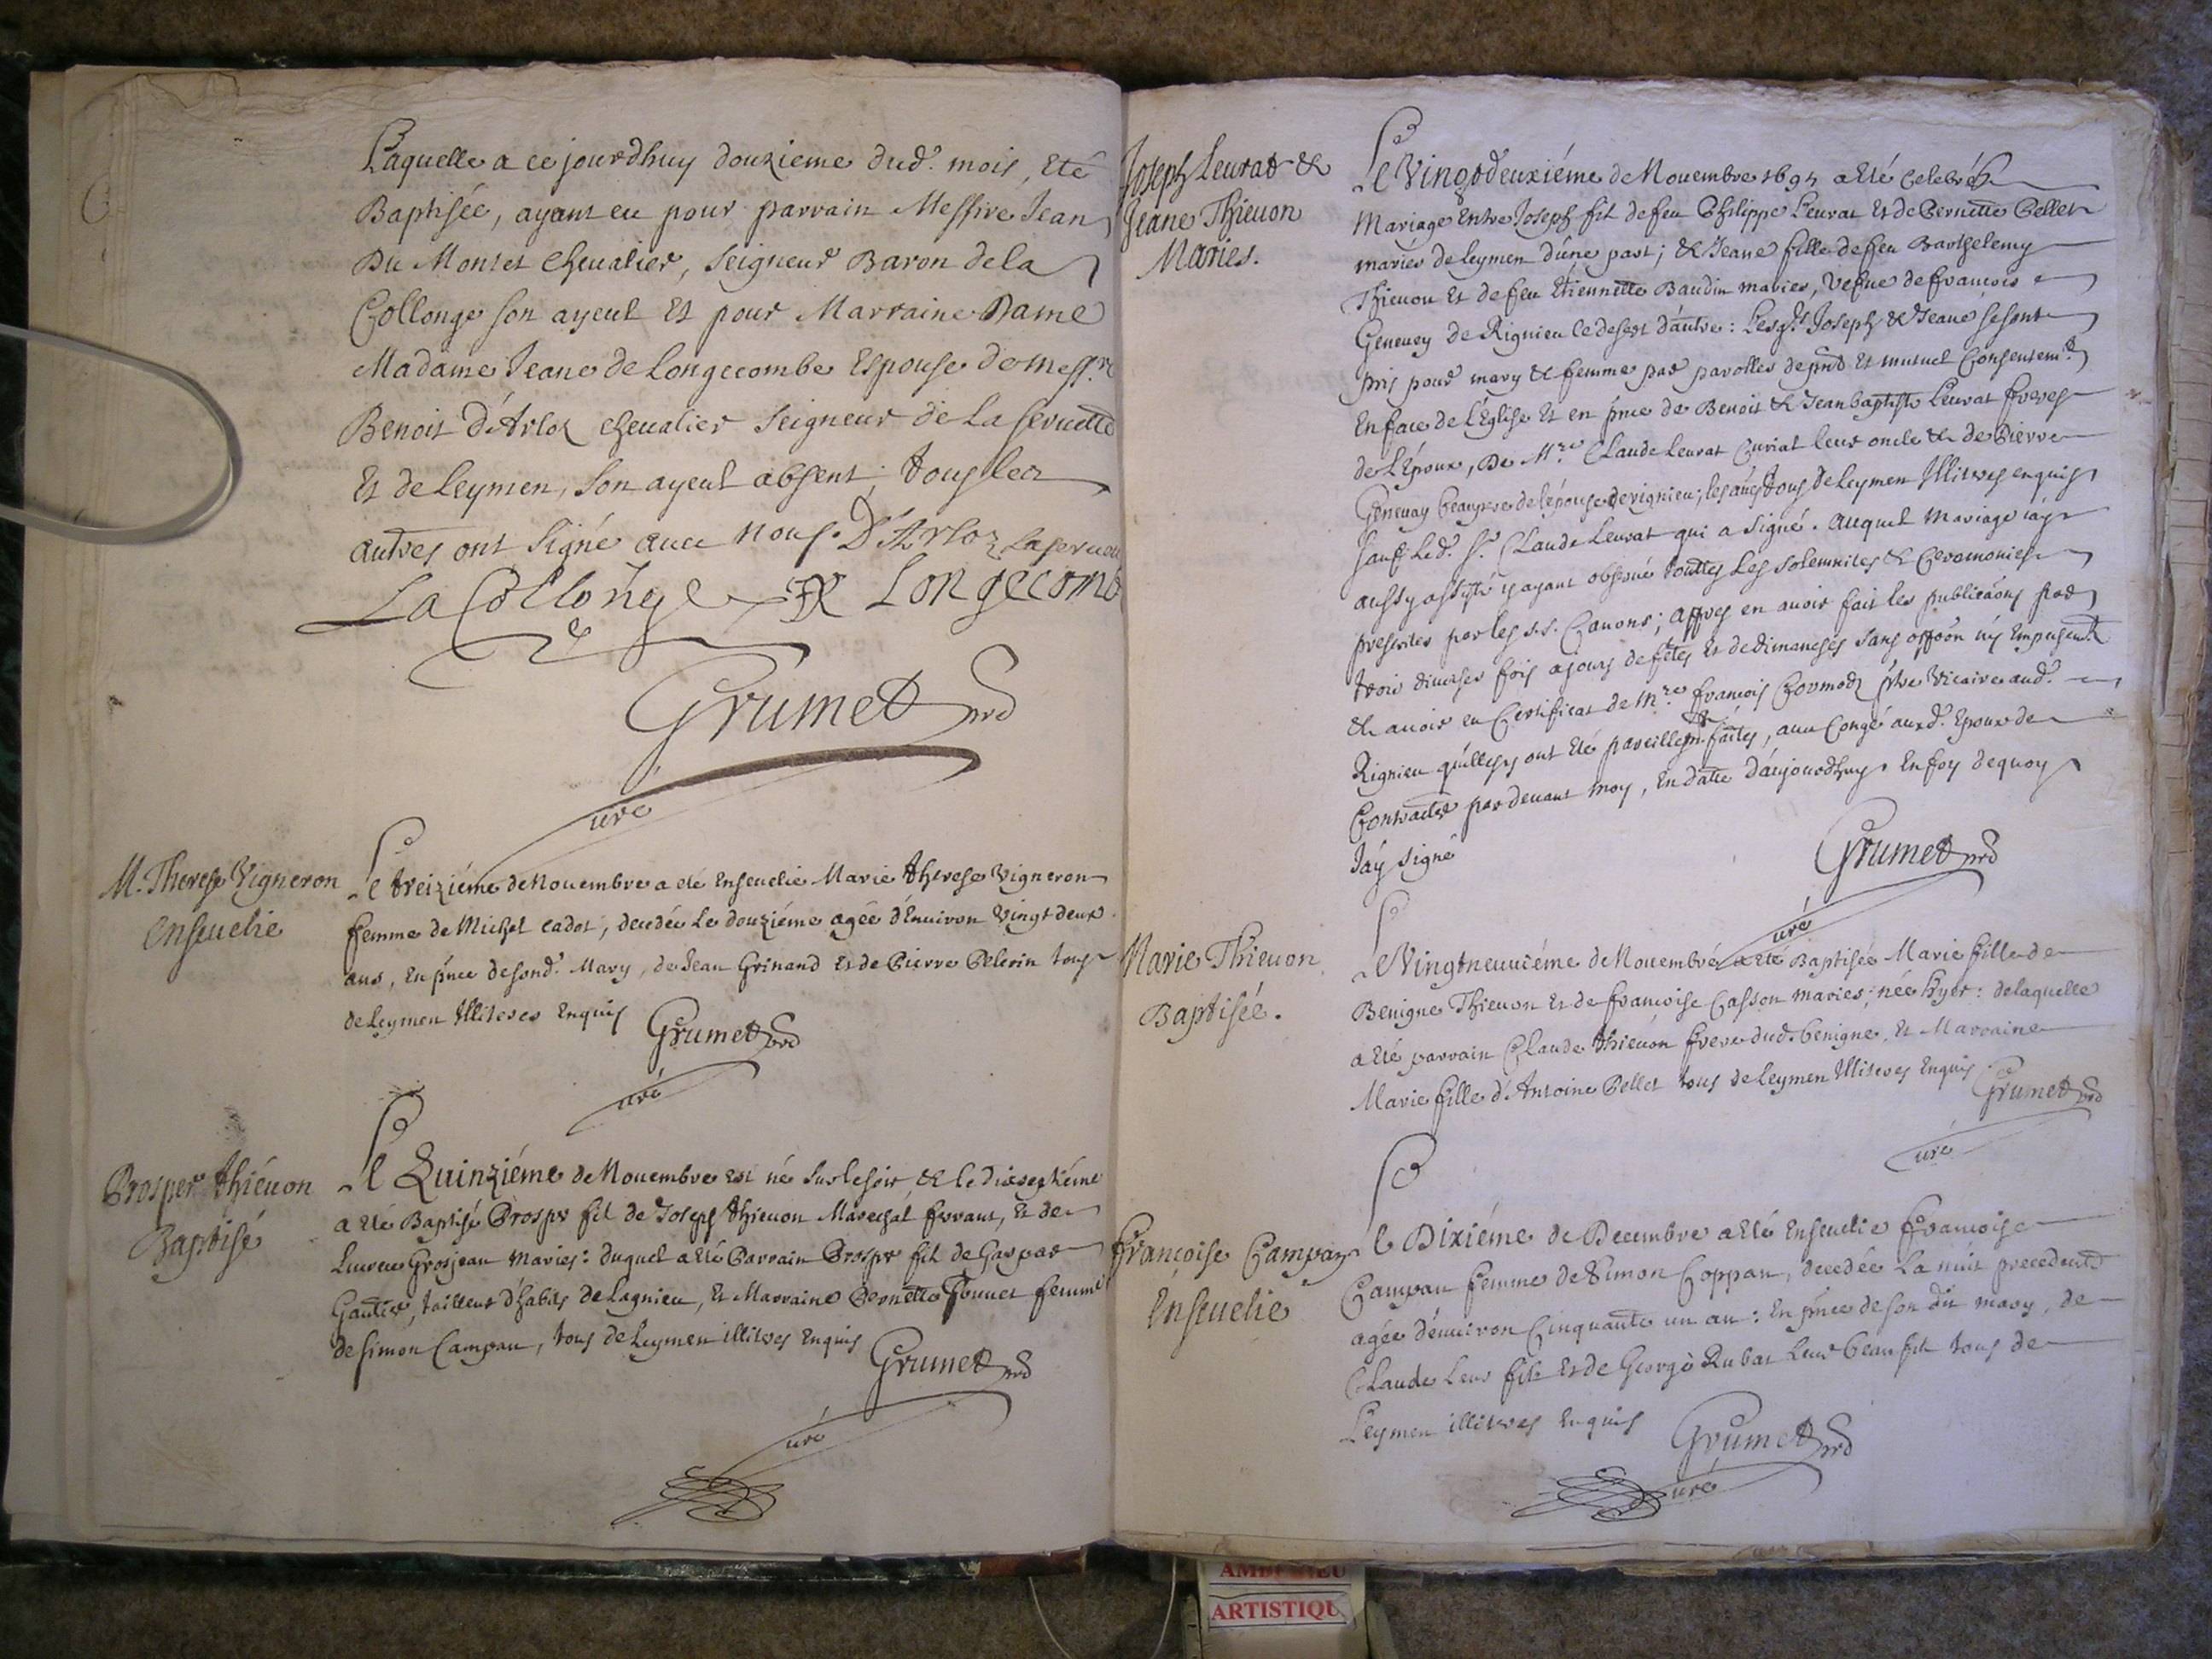 Laquelle a ce jourdhuy douzieme dud. mois, Eté
Baptisée, ayant eu pour parrain Messire Jean
Du Montet Chevalier, Seigneur Baron de la
Collonge son ayeul Et pour Marraine Dame
Madame Jeane de Longecombe Espouse de messre
Benoit d'Arloz chevalier Seigneur de La servette
Et de Leymen, son ayeul absent; tous les
autres ont Signé avec nous. D'Arloz Laservette
La Collonge Longecombe
Grumet
curé
M. Therese Vigneron
Enseuelie
Le treiziéme de Nouembre a eté Enseuelie Marie therese Vigneron
femme de Michel cadot, decedée Le douziéme agée d'Enuiron Vingt deux
ans, En pnce de sond. Mary, de Jean Grinand Et de Pierre Pelerin tous
de Leymen Illiteres Enquis
Grumet
curé
Prosper thiéuon
Baptisé
Le Quinziéme de Nouembre est né sur le soir, & le dixseptiéme
a eté Baptisé Prosper fil de Joseph thieuon Marechal ferrant, Et de
Grosjean Maries: duquel a eté Parrain Prosper fil de Gaspar
Gautier, tailleur d'habits de Lagnieu, Et Marraine Pernette femme
de Simon Campan, tous de Leymen illiteres Enquis
Grumet
curé
Joseph Leurat &
Jeane Thieuon
Maries.
Le Vingtdeuxiéme de Nouembre 1695 a Eté celebré
Mariage Entre Joseph fil de feu Philippe Leurat Et de Pernette Pellet
mariés de Leymen d'une part; & Jeane fille de feu Barthelemy
Thieuon Et de feu Etiennette Baudin maries, vefue de francois
Geneuey de Rignieu le desert d'autre: Lesqls Joseph & Jeane se sont
pris pour mary & femme par parolles de pnt Et mutuel Consentemt
En face de L'Eglise Et en pnce de Benoit & Jean baptiste Leurat freres
de L'Epoux, De Mre Claude Leurat Curial leur oncle & de Pierre
Geneuay beaupere de l'épouse de rignieu; les aues tous de Leymen Illiteres enquis
sauf Led. Sr. Claude Leurat qui a signé. Auquel Mariage iay
aussy assisté y ayant obserué touttes Les solemnites & Ceremonies
prescrites par les S.S. Canons; Apres en auoir fait les publicaons par
trois diuerses fois a jours de fetes Et de dimanches sans opposon ny Empeschemt
& auoir eu Certificat de Mre francois Cormoz ptre Vicaire aud.
Rignieu qu'elles y ont eté pareillemt faites, auec Congé auxd. Epoux de
Contracter par deuant moy, En date d'aujourdhuy. En foy dequoy
J'ay signé
Grumet
curé
Marie Thieuon
Baptisée.
Le Vingtneuuiéme de Nouembre a eté Baptisée Marie fille de
Benigne Thieuon Et de francoise Casson maries; née hyer: de laquelle
a eté parrain Claude thieuon frere dud. benigne, Et Marraine
Marie fille d'Antoine Pellet tous de Leymen Illiteres Enquis
Grumet
curé
Françoise Campan
Enseuelie
Le Dixiéme de Decembre a eté Enseuelie Francoise
Campan femme de Simon Coppan, decedée La nuit precedente
agée d'enuiron Cinquante un an: En pnce de son dit mary, de
Claude Leur fils Et de George Rubat Leur beau fil tous de
Leymen illiteres Enquis
Grumet
curé
ARTISTIQU